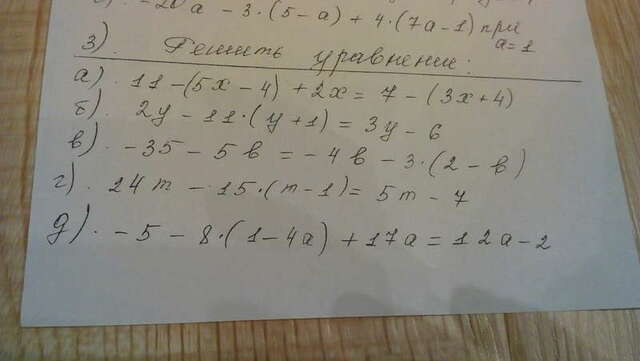 -20a - 3·(5-a) + 4·(7a-1) при
a=1
3). Решить уравнение:
а). 11-(5x-4)+2x = 7-(3x+4)
б). 2y - 11·(y+1) = 3y - 6
в). -35 - 5в = -4в - 3·(2-в)
г). 24m - 15·(m-1) = 5m - 7
д). -5 - 8·(1-4a) + 17a = 12a - 2